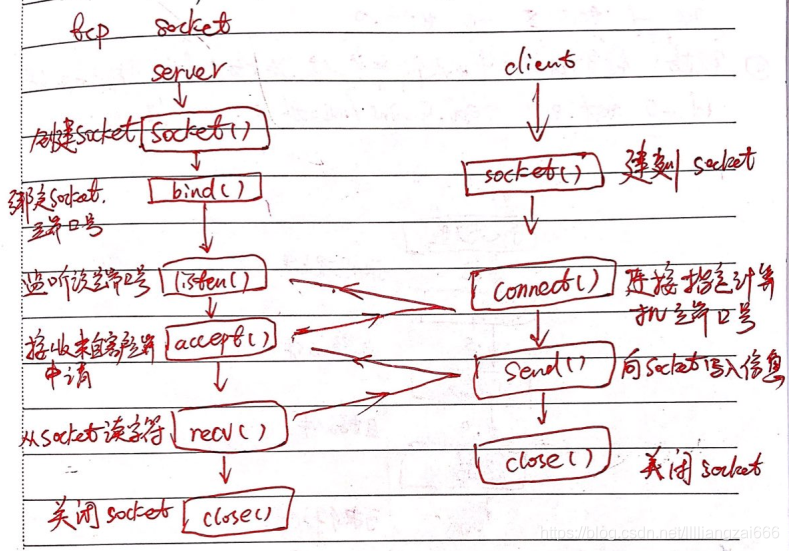 tcp socket
server
client
创建socket socket()
socket() 建立 socket
绑定socket, bind()
端口号
监听该端口号 listen()
connect() 连接指定计算
机 端口号
接收来自客户端 accept()
申请
send() 向socket写入信息
从socket读字符 recv()
close() 关闭 socket
关闭 socket close()
https://blog.csdn.net/llliangzai666